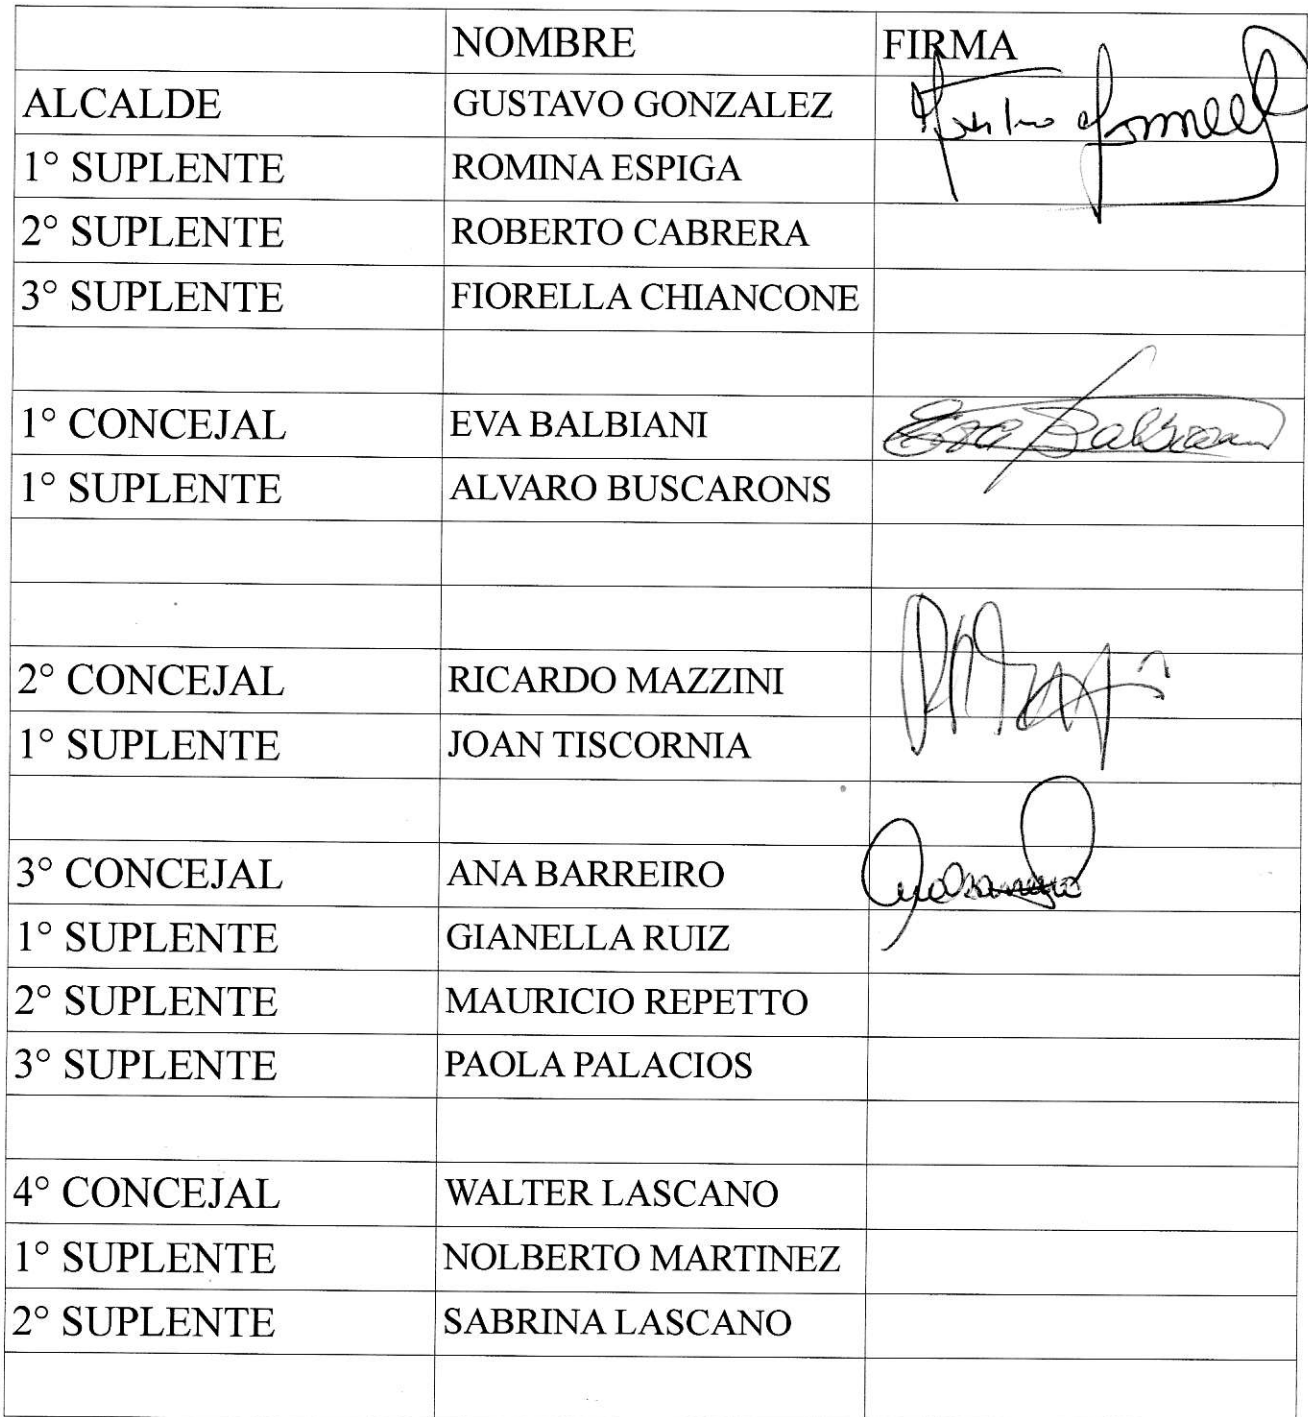 NOMBRE FIRMA
ALCALDE GUSTAVO GONZALEZ
1° SUPLENTE ROMINA ESPIGA
2° SUPLENTE ROBERTO CABRERA
3° SUPLENTE FIORELLA CHIANCONE
1° CONCEJAL EVA BALBIANI Eva Balbiani
1° SUPLENTE ALVARO BUSCARONS
2° CONCEJAL RICARDO MAZZINI
1° SUPLENTE JOAN TISCORNIA
3° CONCEJAL ANA BARREIRO
1° SUPLENTE GIANELLA RUIZ
2° SUPLENTE MAURICIO REPETTO
3° SUPLENTE PAOLA PALACIOS
4° CONCEJAL WALTER LASCANO
1° SUPLENTE NOLBERTO MARTINEZ
2° SUPLENTE SABRINA LASCANO